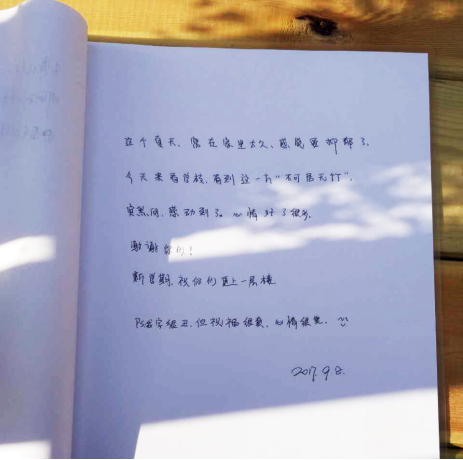 这个夏天,窝在家里太久,感觉要抑郁了。
今天来看学校,看到这一片“不可居无竹”,
突然间,感动到了。心情好了很多。
谢谢你们!
新学期,祝你们更上一层楼
字很丑,但祝福很美,心情很美。
2017.9.8.